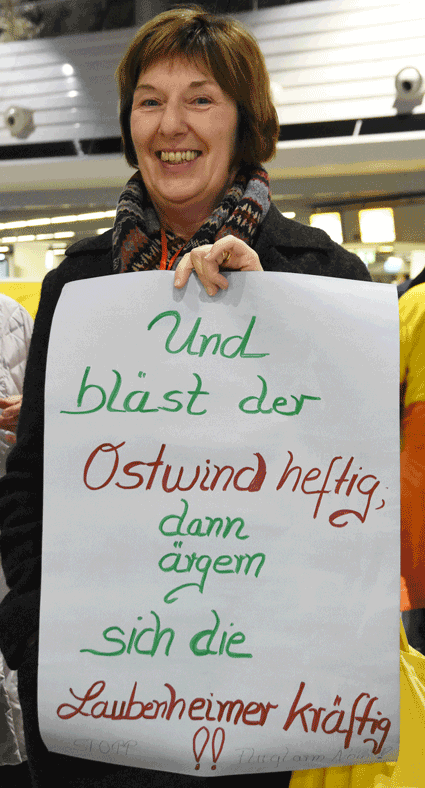 Und
bläst der
Ostwind heftig,
dann
ärgern
sich die
Laubenheimer kräftig
!!
STOPP